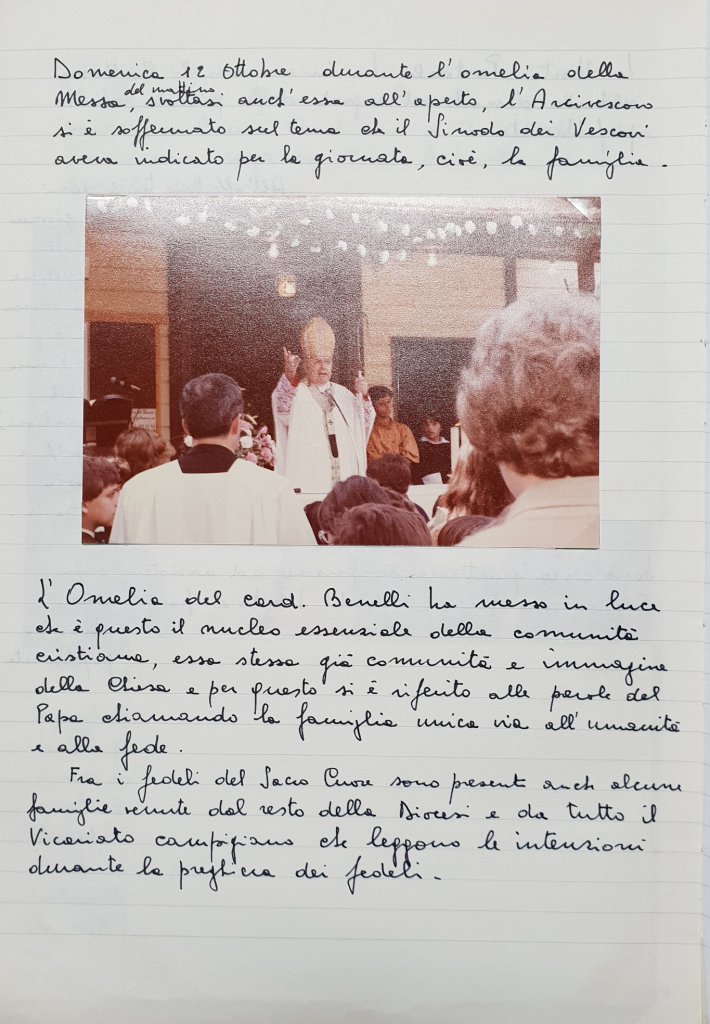 Domenica 12 Ottobre durante l'omelia della
Messa, del mattino svoltasi anch'essa all'aperto, l'Arcivescovo
si è soffermato sul tema che il Sinodo dei Vescovi
aveva indicato per la giornata, cioè, la famiglia.
L'Omelia del card. Benelli ha messo in luce
che è questo il nucleo essenziale della comunità
cristiana, essa stessa già comunità e immagine
della Chiesa e per questo si è riferito alle parole del
Papa chiamando la famiglia unica via all'umanità
e alla fede.
Fra i fedeli del Sacro Cuore sono presenti anche alcune
famiglie venute dal resto della Diocesi e da tutto il
Vicariato campigiano che leggono le intenzioni
durante la preghiera dei fedeli.